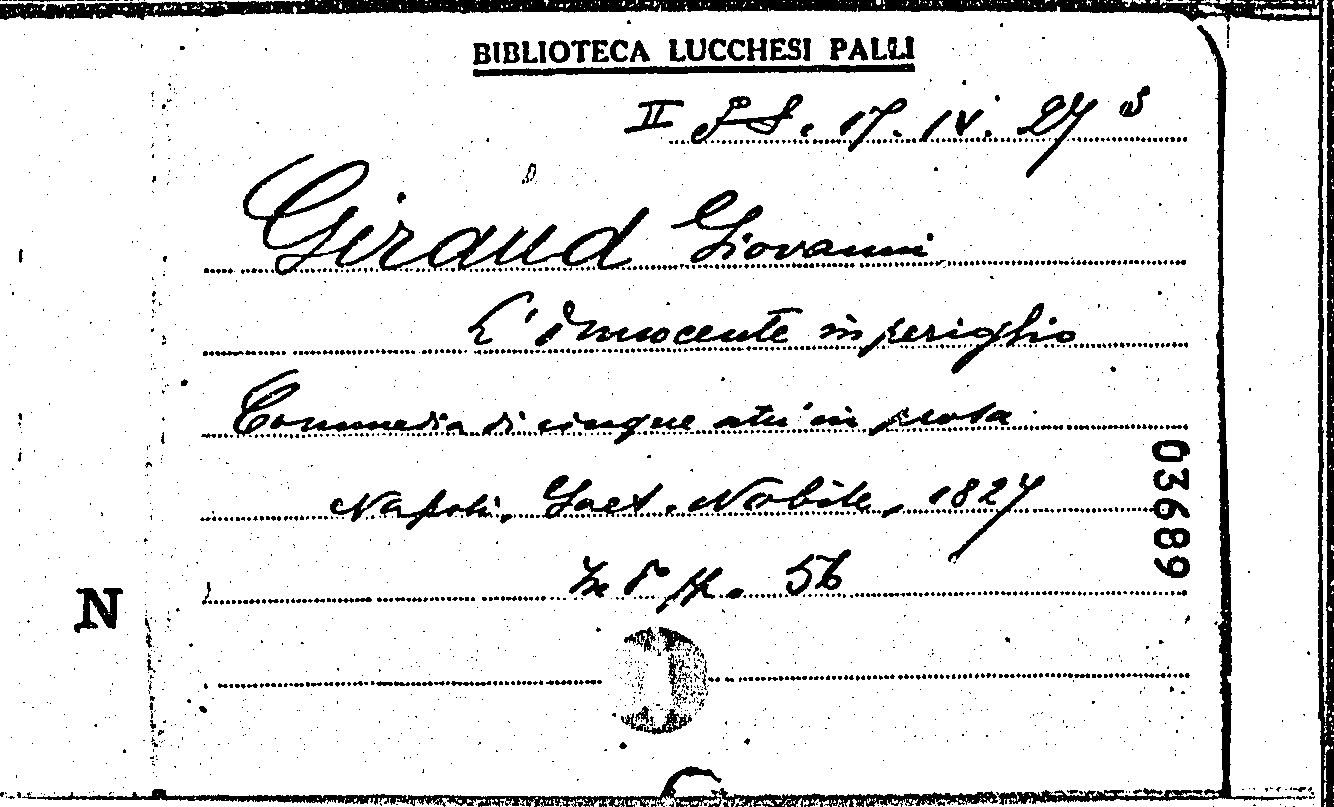 BIBLIOTECA LUCCHESI PALLI
II PS. 17. IV. 27
Giraud Giovanni
L'Innocente in periglio
Commedia di cinque atti in prosa
Napoli, Gaet. Nobile, 1827
In 8° pp. 56
03689
N